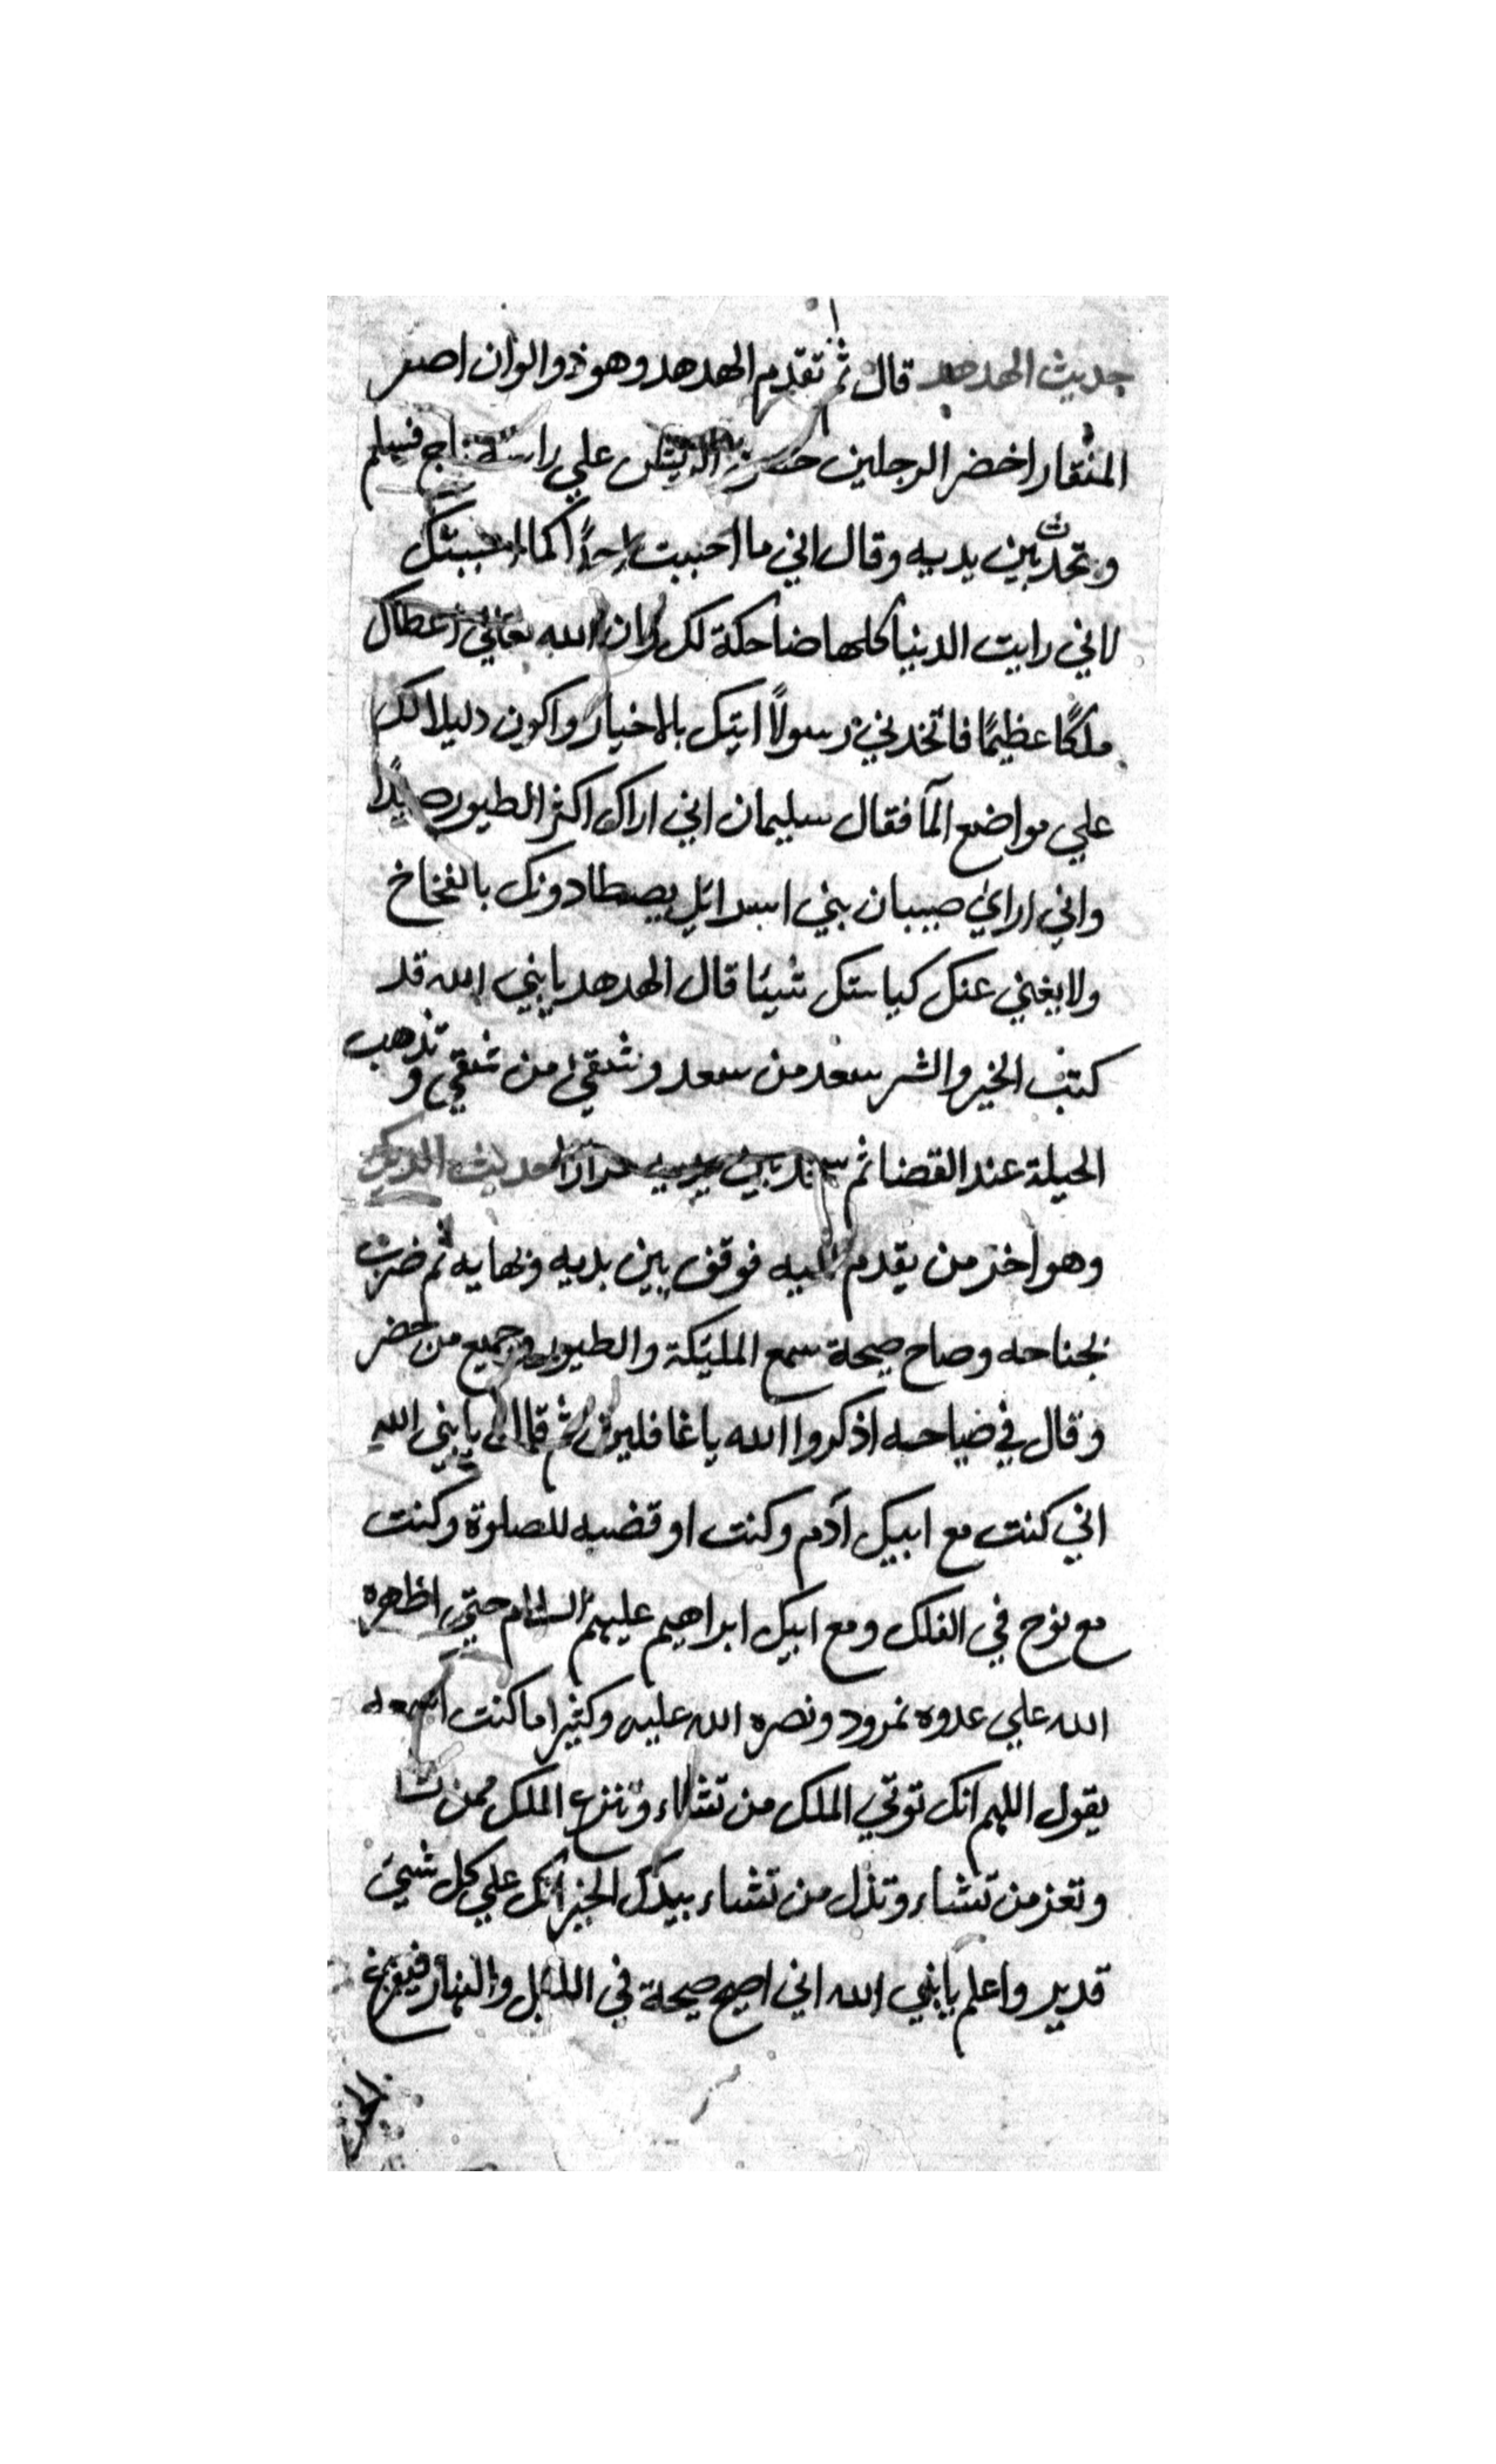 حديث الهدهد قال ثم تقدم الهدهد وهو ذو الوان اصفر
المنقار اخضر الرجلين حسن الريش علي راسه تاج فسلم
وتحدث بين يديه وقال اني ما احببت احدًا كما احببتك
لاني رايت الدنيا كلها ضاحكة لك وان الله تعالي اعطاك
ملكًا عظيمًا فاتخدني رسولاً ايتك بالاخبار واكون دليلا لك
علي مواضع المآ فقال سليمان اني اراك اكثر الطيور صيدًا
واني اراي صبيان بني اسرائيل يصطادونك بالفخاخ
ولا يغني عنك كياستك شيئا قال الهدهد يا نبي الله قد
كتب الخير والشر سعد من سعد وشقي من شقي وتذهب
الحيلة عند القضا ثم بين يديه مرارًا حديث الديك
وهو اخر من يقدم اليه فوقف بين يديه وبهايه ثم ضرب
بجناحه وصاح صيحة سمع المليكة والطيور وجميع من حضر
وقال في ضياحه اذكروا الله يا غافلين ثم قال يا نبي الله
اني كنت مع ابيك آدم وكنت اوقضه للصلوة وكنت
مع نوح في الفلك ومع ابيك ابراهيم عليهم السلام حتي اظهره
الله علي عدوه نمرود ونصره الله عليه وكثيرا ما كنت اسمعه
يقول اللهم انك توتي الملك من تشاء وتنزع الملك ممن تشا
وتعز من تشاء وتذل من تشاء بيدك الخير انك علي كل شيئ
قدير واعلم يا نبي الله اني اصيح صيحة في الليل والنهار فيفزع